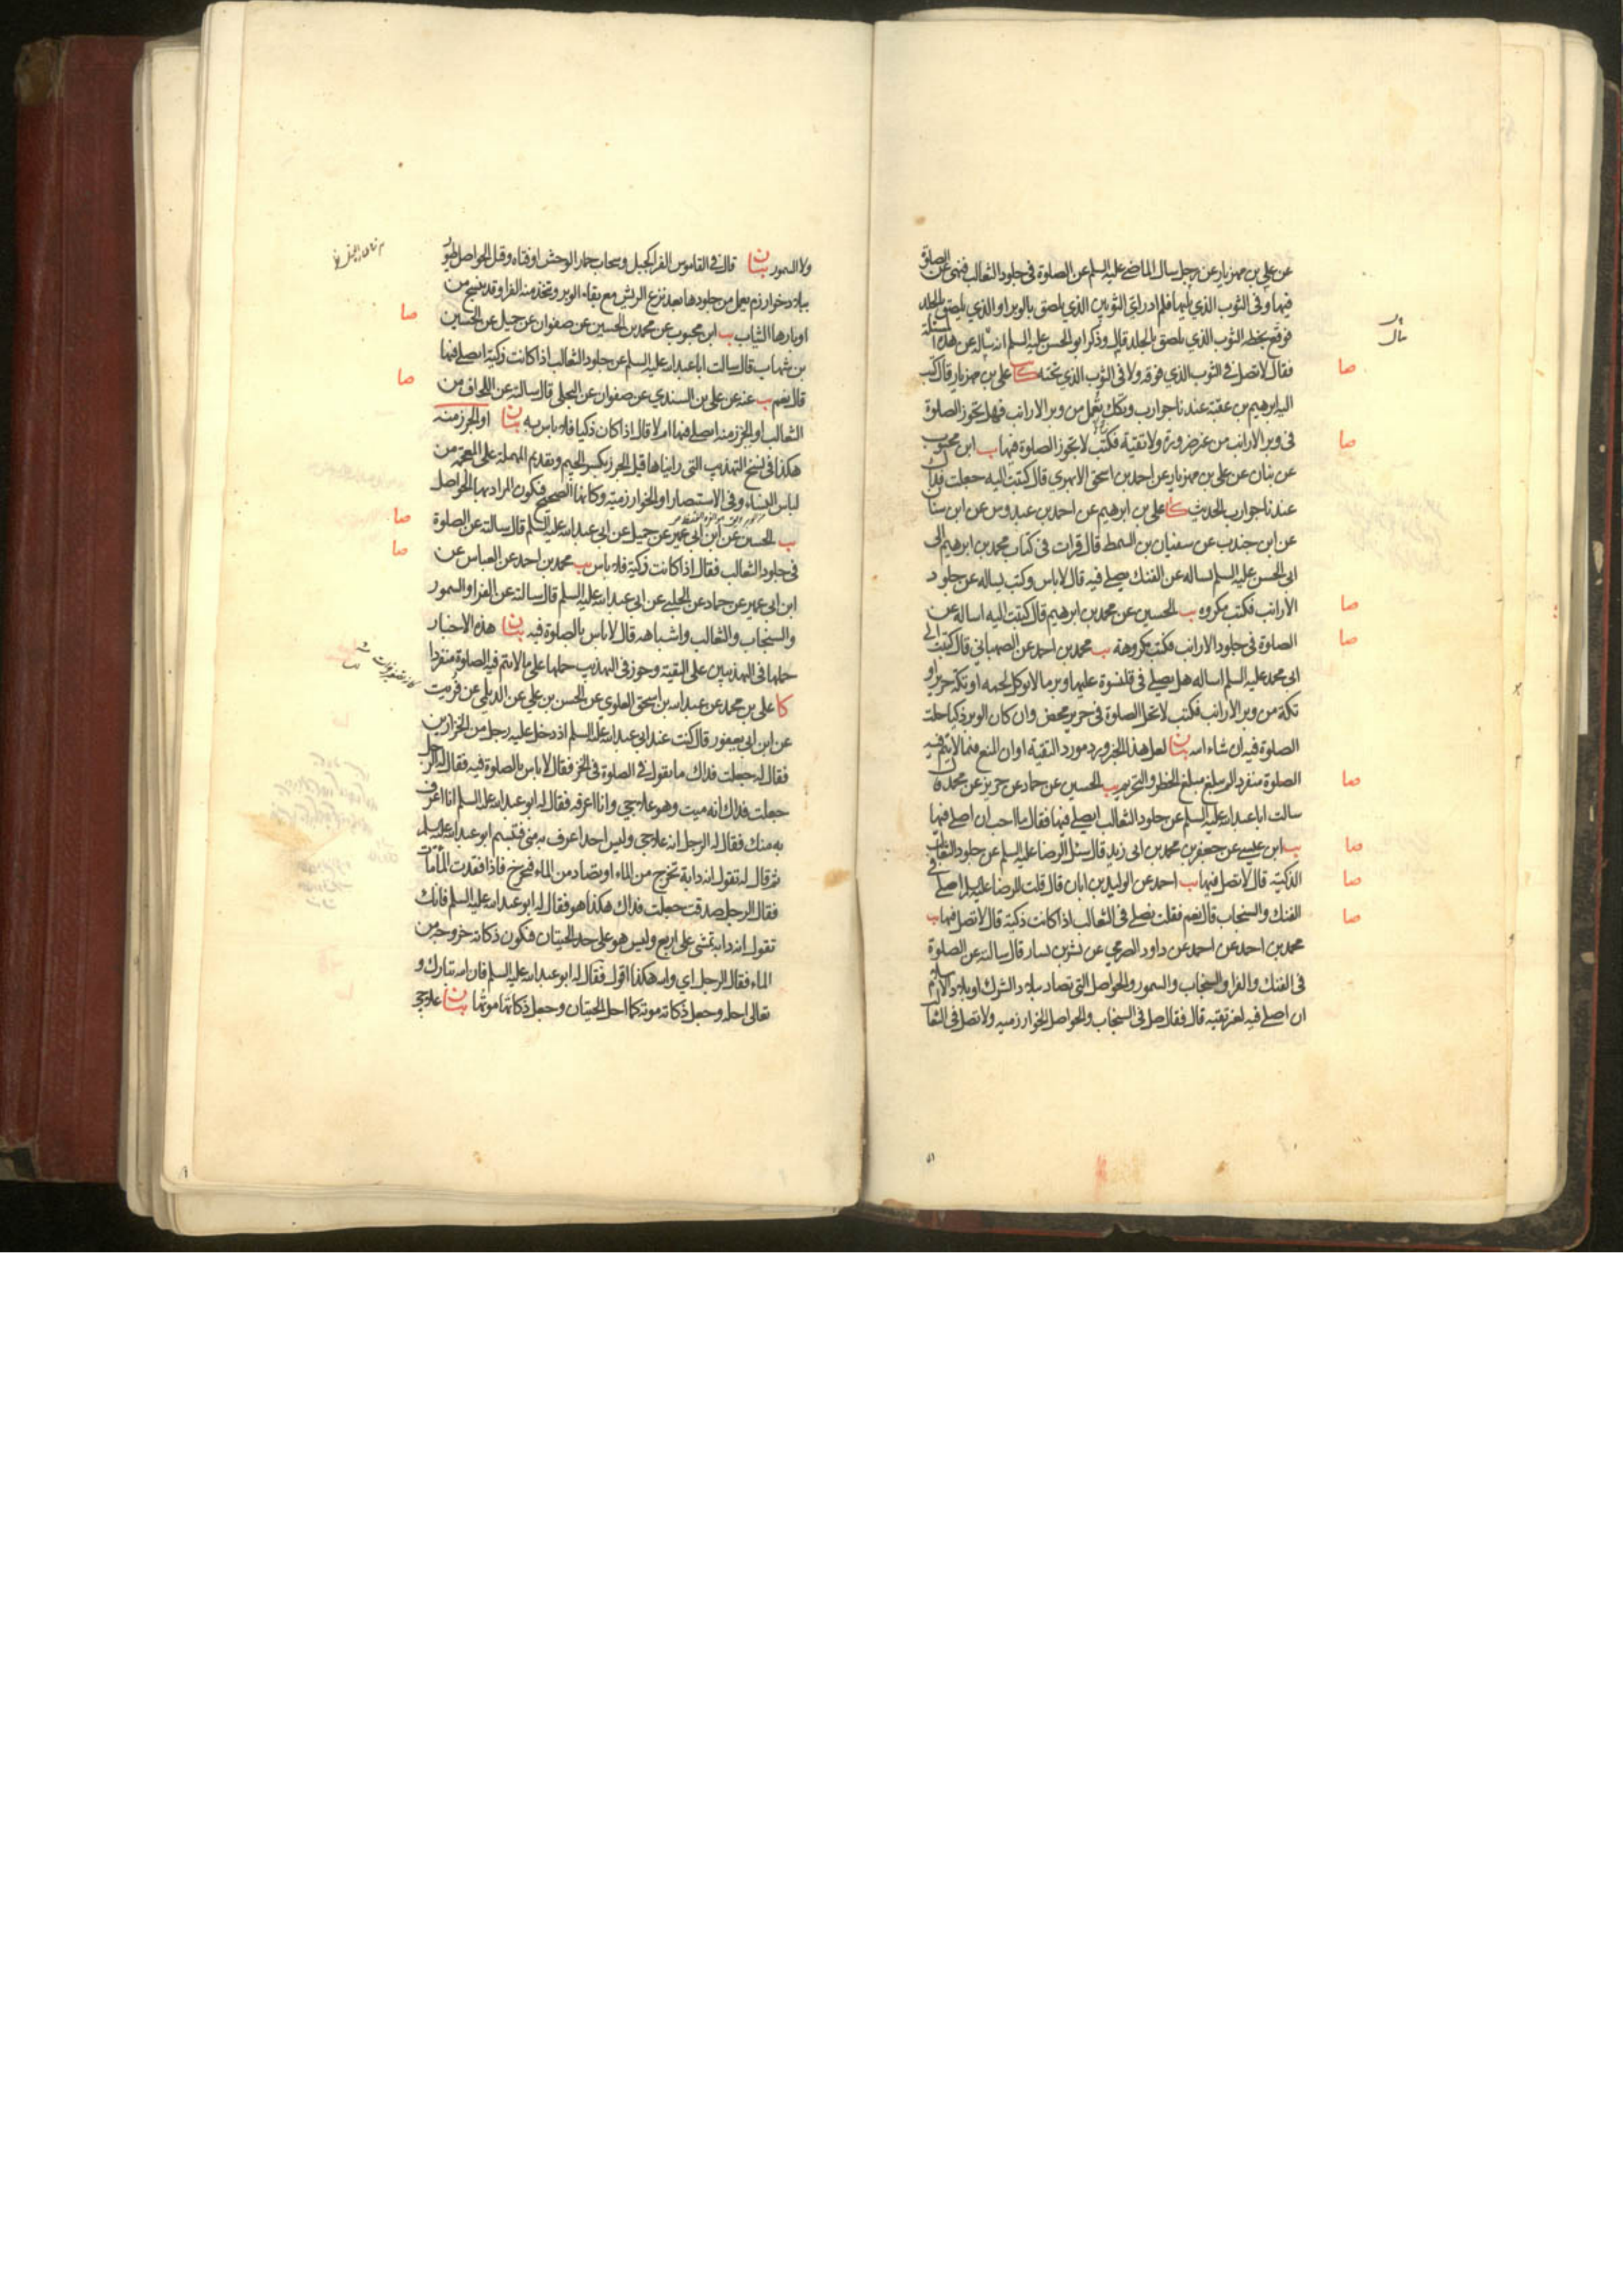 عن علي بن مهزيار عن رجل سال الماضي عليه السلم عن الصلوة في جلود الثعالب فنهى عن الصلوة
فيها وفي الثوب الذي يليها فلم ادر اي الثوبين الذي يلصق بالوبر او الذي يلصق بالجلد
فوقع بخطه الثوب الذي يلصق بالجلد قال وذكر ابو الحسن عليه السلم انه سأله عن هذه المسئلة
فقال لا تصل في الثوب الذي فوقه ولا في الثوب الذي تحته كا علي بن مهزيار قال كتب
اليه ابرهيم بن عقبة عندنا جوارب وتكك تعمل من وبر الارانب فهل تجوز الصلوة
في وبر الارانب من غير ضرورة ولا تقية فكتب لا تجوز الصلوة فيها يب ابن محبوب
عن بنان عن علي بن مهزيار عن احمد بن اسحق الابهري قال كتبت اليه جعلت فداك
عندنا جوارب الحديث كا علي بن ابرهيم عن احمد بن عبدوس عن ابن سنان
عن ابن جندب عن سفيان بن السمط قال قرات في كتاب محمد بن ابرهيم الى
ابي الحسن عليه السلم يساله عن الفنك يصلي فيه قال لا باس وكتب يساله عن جلود
الارانب فكتب مكروه يب الحسين عن محمد بن ابرهيم قال كتبت اليه اساله عن
الصلوة في جلود الارانب فكتب مكروهة يب محمد بن احمد عن الصهباني قال كتبت الى
ابي محمد عليه السلم اساله هل يصلي في قلنسوة عليها وبر ما لا يوكل لحمه او تكة حرير او
تكة من وبر الارانب فكتب لا تحل الصلوة في حرير محض وان كان الوبر ذكيا حلت
الصلوة فيه ان شاء الله بيان لعل هذا الخبر ورد مورد التقية او ان المنع فيما لا يتم فيه
الصلوة منفردا لم يبلغ مبلغ الحظر والتحريم يب الحسين عن حماد عن حريز عن محمد قال
سالت ابا عبد الله عليه السلم عن جلود الثعالب ايصلي فيها فقال ما احب ان اصلي فيها
يب ابن عيسى عن جعفر بن محمد بن ابي زيد قال سئل الرضا عليه السلم عن جلود الثعالب
الذكية قال لا تصل فيها يب احمد عن الوليد بن ابان قال قلت للرضا عليه السلم اصلي في
الفنك والسنجاب قال نعم فقلت يصلي في الثعالب اذا كانت ذكية قال لا تصل فيها يب
محمد بن احمد عن احمد عن داود الصرمي عن بشر بن يسار قال سالته عن الصلوة
في الفنك والفرا والسنجاب والسمور والحواصل التي تصاد ببلاد الشرك او بلاد الاسلام
ان اصلي فيه لغير تقية قال فقال صل في السنجاب والحواصل الخوارزمية ولا تصل في الثعالب
صا
صا
صا
صا
صا
صا
صا
صا
ولا السمور بيان قال في القاموس الفرا كجبل وسحاب حمار الوحش او فتاه وقيل الحواصل طيور
ببلاد خوارزم يعمل من جلودها بعد نزع الريش مع بقاء الوبر وتتخذ منه الفرا وقد ينسج من
اوبارها الثياب يب ابن محبوب عن محمد بن الحسين عن صفوان عن جميل عن الحسين
بن شهاب قال سالت ابا عبد الله عليه السلم عن جلود الثعالب اذا كانت ذكية ايصلي فيها
قال نعم يب عنه عن علي بن السندي عن صفوان عن البجلي قال سالته عن اللحاف من
الثعالب او الجرز منه ايصلي فيها ام لا قال اذا كان ذكيا فلا باس به بيان او الجرز منه
هكذا في نسخ التهذيب التي رايناها قيل الجرز بكسر الجيم وتقديم المهملة على المعجمة من
لباس النساء وفي الاستبصار او الخوارزمية وكانها الصحيح فيكون المراد بها الحواصل
يب الحسين عن ابن ابي عمير عن جميل عن ابي عبد الله عليه السلم قال سالته عن الصلوة
في جلود الثعالب فقال اذا كانت ذكية فلا باس يب محمد بن احمد عن العباس عن
ابن ابي عمير عن حماد عن الحلبي عن ابي عبد الله عليه السلم قال سالته عن الفرا والسمور
والسنجاب والثعالب واشباهه قال لا باس بالصلوة فيه بيان هذه الاخبار
حملها في التهذيبين على التقية وجوز في التهذيب حملها على ما لا يتم فيه الصلوة منفردا
كا علي بن محمد عن عبد الله بن اسحق العلوي عن الحسن بن علي عن الديلمي عن فرميت
عن ابن ابي يعفور قال كنت عند ابي عبد الله عليه السلم اذ دخل عليه رجل من الخزازين
فقال له جعلت فداك ما تقول في الصلوة في الخز فقال لا باس بالصلوة فيه فقال له الرجل
جعلت فداك انه ميت وهو علاجي وانا اعرفه فقال له ابو عبد الله عليه السلم انا اعرف
به منك فقال له الرجل انه علاجي وليس احد اعرف به مني فتبسم ابو عبد الله عليه السلم
ثم قال له تقول انه دابة تخرج من الماء او تصاد من الماء فتخرج فاذا فقدت الماء مات
فقال الرجل صدقت جعلت فداك هكذا هو فقال له ابو عبد الله عليه السلم فانك
تقول انه دابة تمشي على اربع وليس هو على حد الحيتان فيكون ذكاته خروجه من
الماء فقال الرجل اي والله هكذا اقول فقال له ابو عبد الله عليه السلم فان الله تبارك و
تعالى احله وجعل ذكاته موته كما احل الحيتان وجعل ذكاتها موتها بيان علاجي
صا
صا
صا
صا